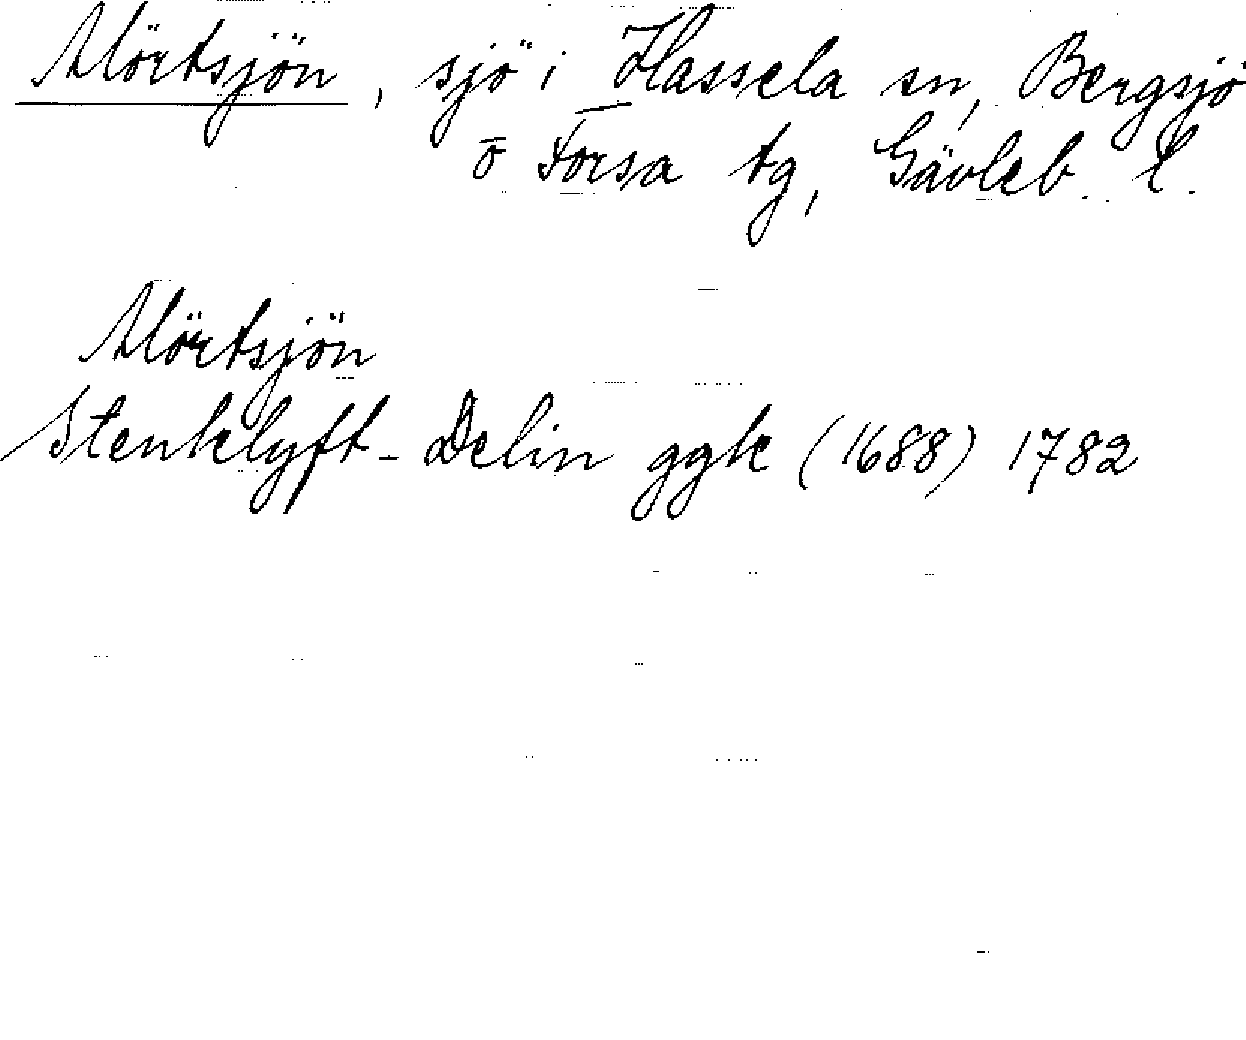 Mörtsjön, sjö i Hassela sn, Bergsjö
o Forsa tg, Gävleb. l.
Mörtsjön
Stenklyft-Delin ggk (1688) 1782